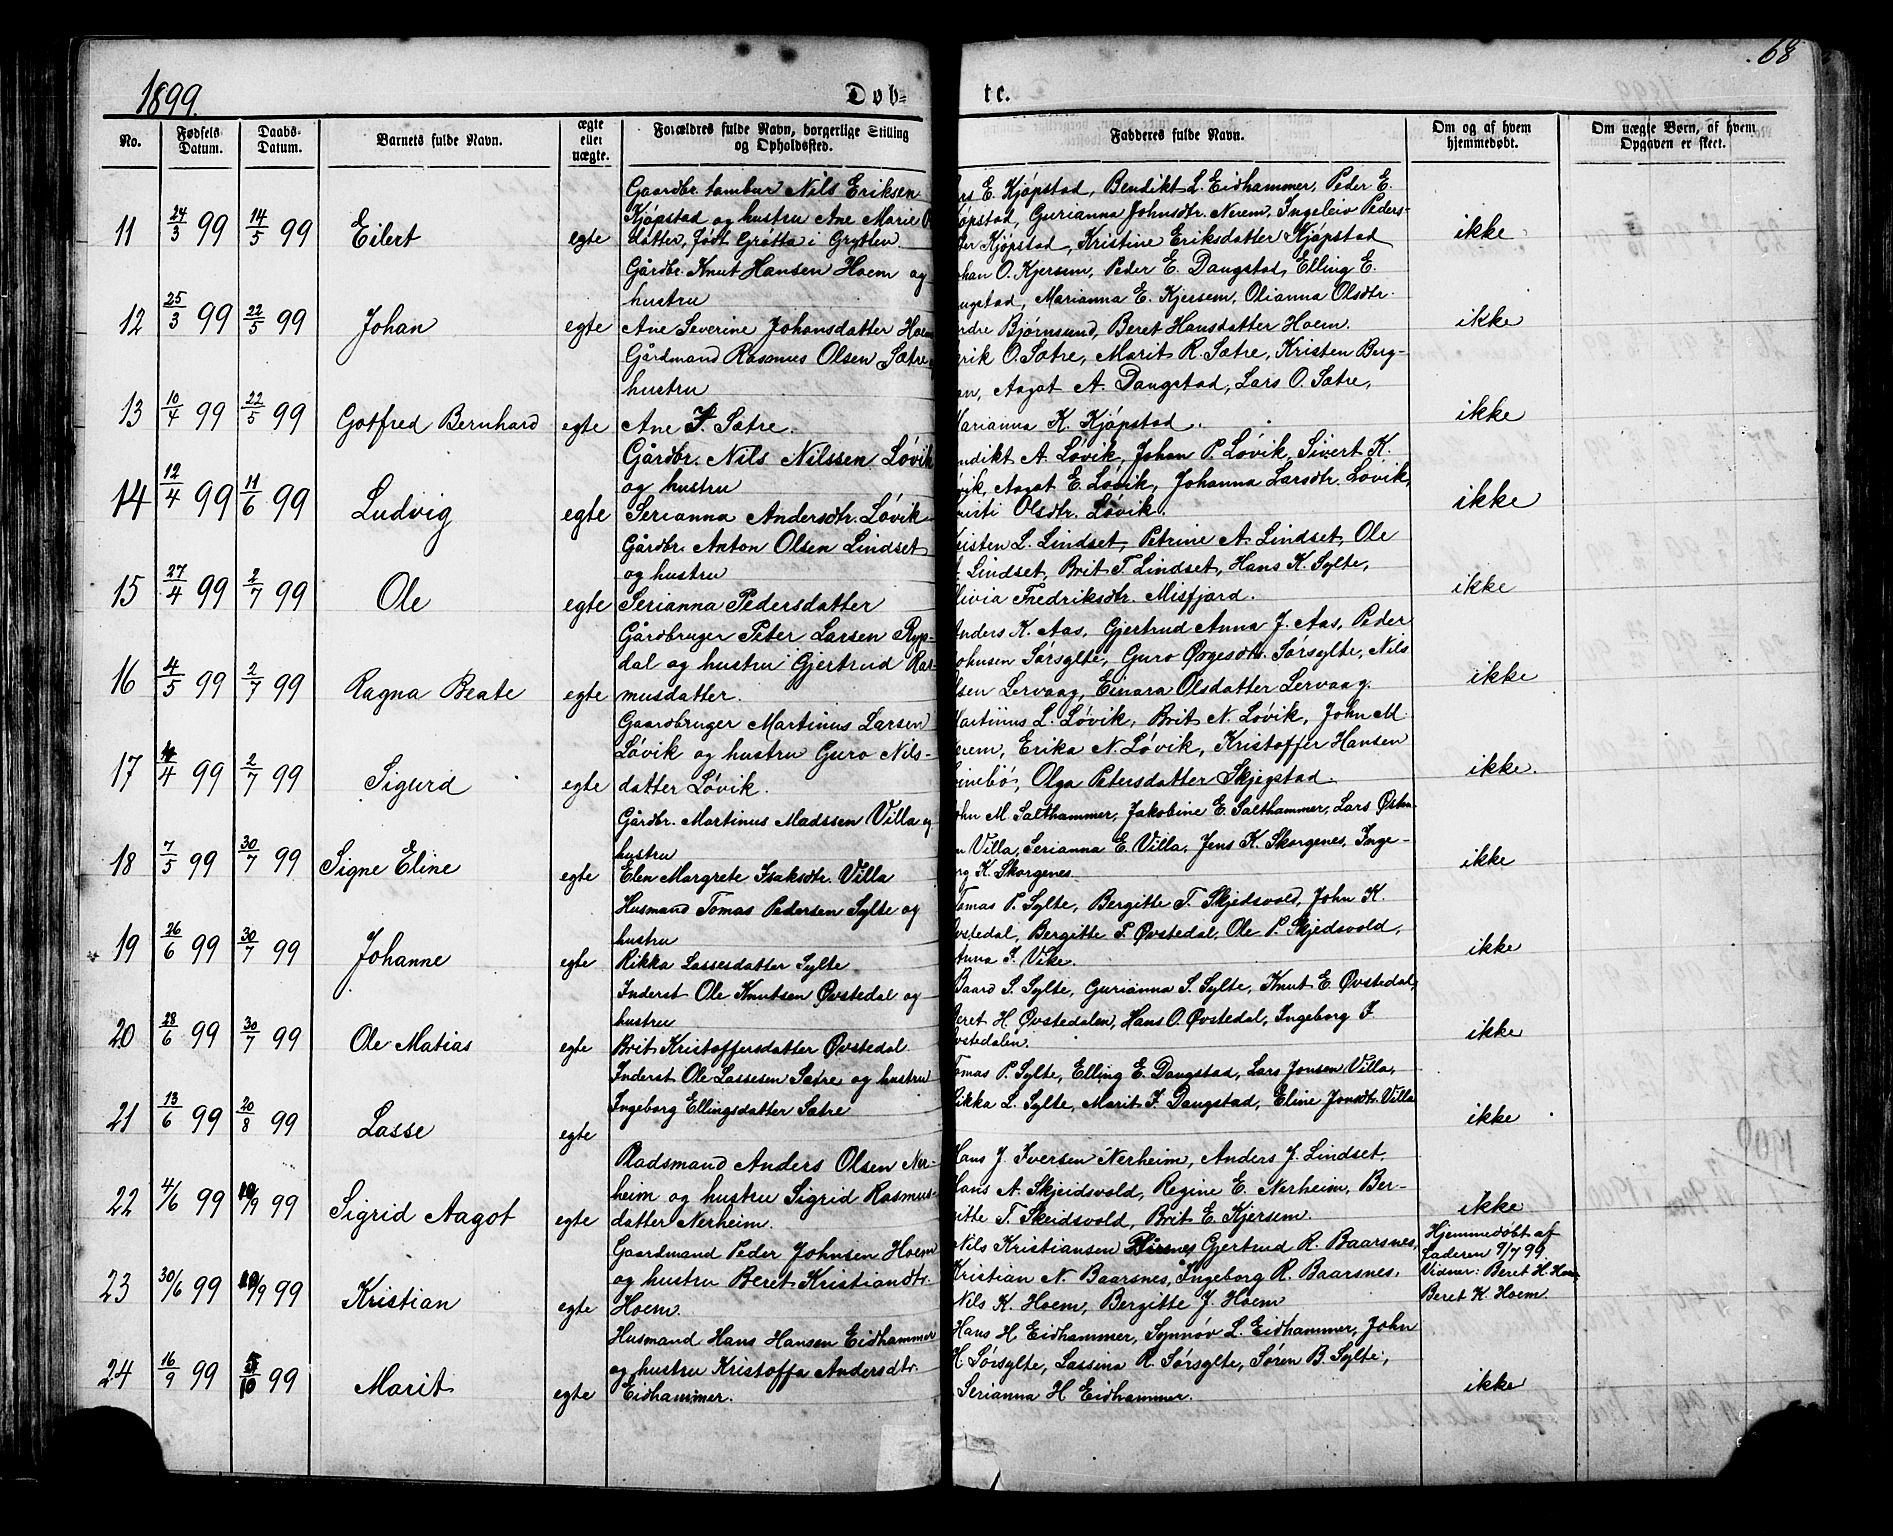 1899.
Døb=
te.
68
No.
Fødsels Datum.
Daabs-Datum.
Barnets fulde Navn.
ægte eller uægte.
Forældres fulde Navn, borgerlige Stilling og Opholdssted.
Fadderes fulde Navn.
Om og af hvem hjemmedøbt.
Om uægte Børn, af hvem Opgaven er skeet.
11 24/3 99 14/5 99 Eilert egte
Gaardbr. tambur Nils Eriksen
Kjøpstad og hustru Ane Marie
datter, født Grøtta i Grytten
E. Kjøpstad, Bendikt L. Eidhammer, Peder E.
Gurianna Johnsdtr. Nerem, Ingeleiv Peders-
Kjøpstad, Kristine Eriksdatter Kjøpstad
ikke
12 25/3 99 22/5 99 Johan egte
Gårdbr. Knut Hansen Hoem og
hustru
Ane Severine Johansdatter Hoem
O. Kjersem, Peder E. Daugstad, Elling E.
Marianna E. Kjersem, Olianna Olsdtr.
Bjørnsund, Beret Hansdatter Hoem.
ikke
13 10/4 99 22/5 99 Gotfred Bernhard egte
Gårdmand Rasmus Olsen Sætre
hustru
Ane Sætre.
O. Sætre, Marit R. Sætre, Kristen Berg-
Aagot A. Daugstad, Lars O. Sætre,
Marianna K. Kjøpstad.
ikke
14 12/4 99 11/6 99 Ludvig egte
Gårdbr. Nils Nilssen Løvik
og hustru
Serianna Andersdtr. Løvik
A. Løvik, Johan P. Løvik, Sivert K.
Aagot E. Løvik, Johanna Larsdtr. Løvik,
Olsdtr. Løvik.
ikke
15 27/4 99 2/7 99 Ole egte
Gårdbr. Anton Olsen Lindset
og hustru
Serianna Pedersdatter
L. Lindset, Petrine A. Lindset, Ole
Lindset, Brit T. Lindset, Hans K. Sylte,
Fredriksdtr. Misfjord.
ikke
16 4/5 99 2/7 99 Ragna Beate egte
Gårdbruger Peter Larsen Ryp-
dal og hustru Gjertrud Ras-
musdatter.
Anders K. Aas, Gjertrud Anna J. Aas, Peder
Johnsen Sørsylte, Guro Øvgesdtr. Sørsylte, Nils
Lervaag, Einara Olsdatter Lervaag.
ikke
17 4 99 2/7 99 Sigurd egte
Gaardbruger Martinus Larsen
Løvik og hustru Guro Nils-
datter Løvik.
Martinus L. Løvik, Brit N. Løvik, John M.
Erika N. Løvik, Kristoffer Hansen
Olga Petersdatter Skjegstad.
ikke.
18 7/5 99 30/7 99 Signe Eline egte
Gårdbr. Martinus Madssen Villa og
hustru
Elen Margrete Isaksdtr. Villa
M. Salthammer, Jakobine E. Salthammer, Lars Østen
Villa, Serianna E. Villa, Jens K. Skorgenes, Inge-
K. Skorgenes
ikke
19 26/6 99 30/7 99 Johanne egte
Husmand Tomas Pedersen Sylte og
hustru
Rikka Lassesdatter Sylte
Tomas P. Sylte, Bergitte T. Skjedsvold, John K.
Øvstedal, Bergitte T. Øvstedal, Ole P. Skjedsvold,
Anna I. Vike.
ikke
20 28/6 99 30/7 99 Ole Matias egte
Inderst Ole Knutsen Øvstedal og
hustru
Brit Kristoffersdatter Øvstedal
Baard S. Sylte, Gurianna S. Sylte, Knut E. Øvstedal,
Beret H. Øvstedalen, Hans O. Øvstedal, Ingeborg I.
Øvstedalen.
ikke
21 13/6 99 20/8 99 Lasse egte
Inderst Ole Lassesen Sætre og hustru
Ingeborg Ellingsdatter Sætre
Tomas P. Sylte, Elling E. Daugstad, Lars Jonsen Villa,
Rikka L. Sylte, Marit I. Daugstad, Eline Jonsdtr. Villa
ikke
22 4/6 99 10/9 99 Sigrid Aagot egte
Pladsmand Anders Olsen Ner-
heim og hustru Sigrid Rasmus-
datter Nerheim.
Hans J. Iversen Nerheim, Anders J. Lindset,
Hans A. Skjeidsvold, Regine E. Nerheim, Ber-
gitte T. Skeidsvold, Brit E. Kjersem.
ikke
23 30/6 99 10/9 99 Kristian egte
Gaardmand Peder Johnsen Hoem
og hustru Beret Kristiandtr.
Hoem.
Nils Kristiansen Gjertrud R. Baarsnes,
Kristian N. Baarsnes, Ingeborg R. Baarsnes,
Nils K. Hoem, Bergitte J. Hoem
Hjemmedøbt af
faderen 9/7 99.
Vidner: Beret H. Hoem
Beret K. Hoem.
24 16/9 99 5/10 99 Marit egte
Husmand Hans Hansen Eidhammer
og hustru Kristoffa Andersdtr.
Eidhammer.
Hans H. Eidhammer, Synnøv L. Eidhammer, John
H. Sørsylte, Lassina R. Sørsylte, Søren B. Sylte,
Serianna H. Eidhammer.
ikke